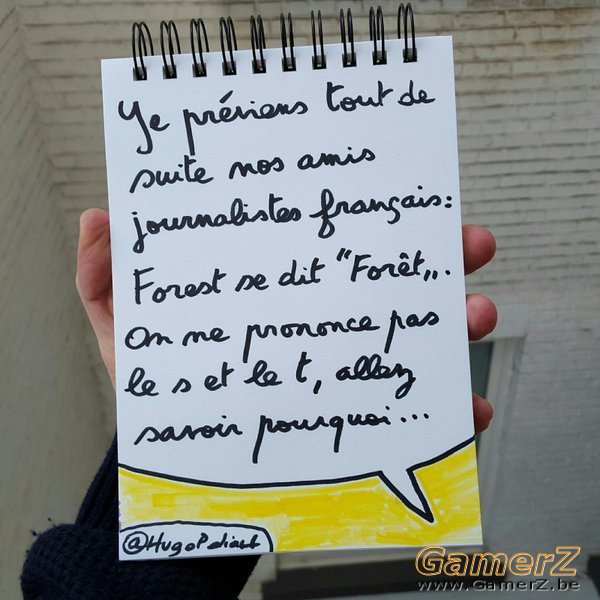 Je préviens tout de
suite nos amis
journalistes français:
Forest se dit "Forêt„.
On ne prononce pas
le s et le t, allez
savoir pourquoi...
GamerZ
www.GamerZ.be